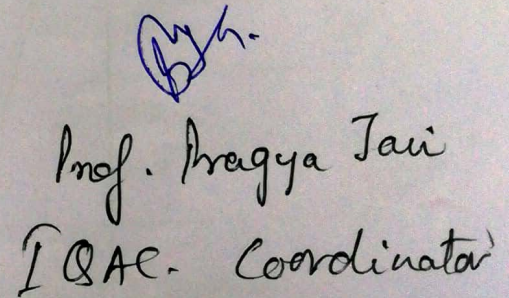 Prof. Pragya Jain
IQAC. Coordinator